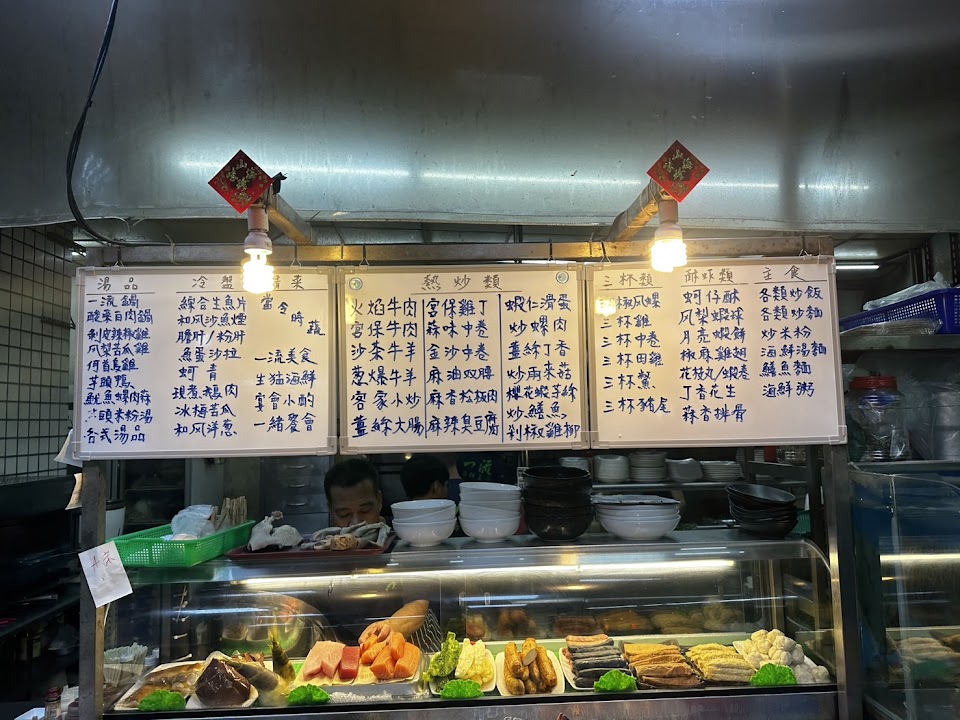 湯品
一流鍋
酸菜白肉鍋
剝皮辣椒雞
鳳梨苦瓜雞
何首烏雞
芋頭鴨
魷魚螺肉蒜
芋頭米粉湯
各式湯品
冷盤
綜合生魚片
和风沙魚煙
膽肝/粉肝
魚蛋沙拉
蚵青
現煮鵝肉
冰梅苦瓜
和风洋蔥
菜
當令時蔬
一流美食
生猛海鮮
宴會小酌
一緒餐會
熱炒類
火焰牛肉
宮保牛肉
沙茶牛羊
蔥爆牛羊
客家小炒
薑絲大腸
宮保雞丁
蒜味中卷
金沙中卷
麻油双腰
麻香松板肉
麻辣臭豆腐
蝦仁滑蛋
炒螺肉
薑絲丁香
炒雨來菇
櫻花蝦芋絲
炒鱔魚
剁椒雞柳
三杯類
椒风螺
三杯雞
三杯中卷
三杯田雞
三杯鱉
三杯豬尾
酥炸類
蚵仔酥
风梨蝦球
月亮蝦餅
椒麻雞翅
花枝丸/蝦卷
丁香花生
蒜香排骨
主食
各類炒飯
各類炒麵
炒米粉
海鮮湯麵
鱔魚麵
海鮮粥